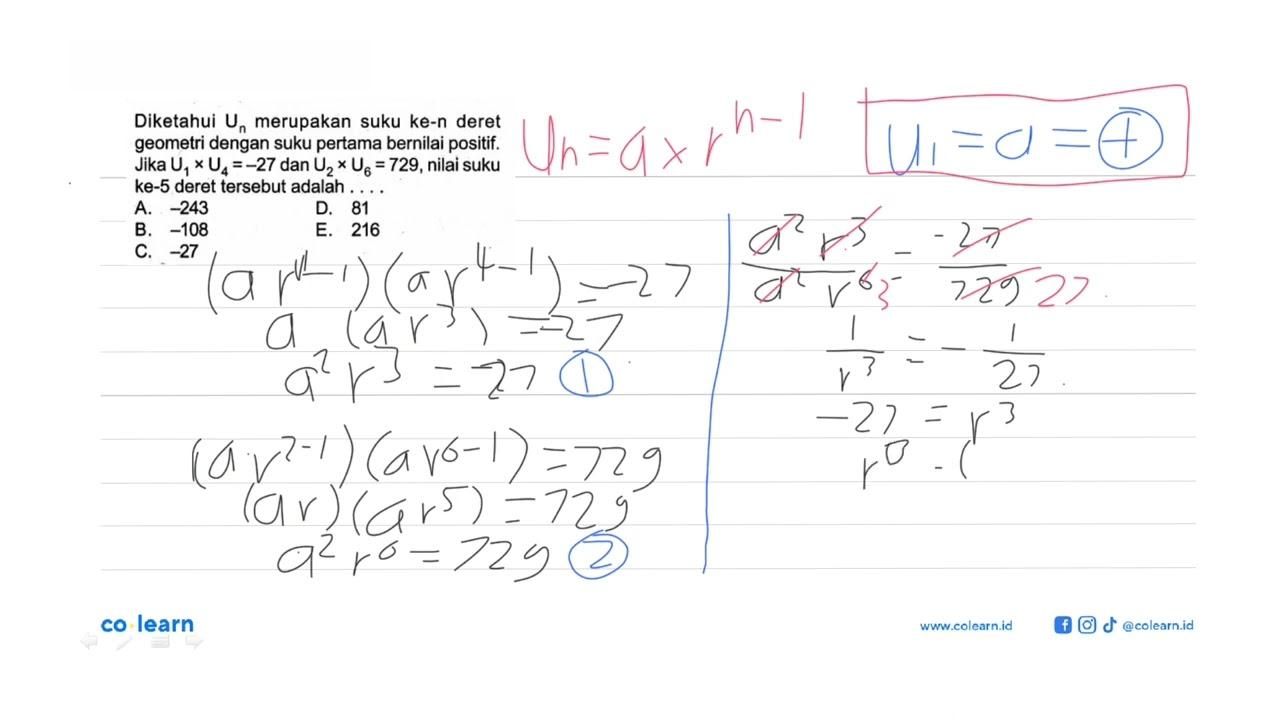 Diketahui Uₙ merupakan suku ke-n deret
geometri dengan suku pertama bernilai positif.
Jika U₁ × U₄ = –27 dan U₂ × U₆ = 729, nilai suku
ke-5 deret tersebut adalah . . . .
A. –243 D. 81
B. –108 E. 216
C. –27
Un = a × r^(n-1)
U₁ = a = +
(ar^(1-1))(ar^(4-1)) = -27
a (ar³) = -27
a²r³ = -27 ①
(ar^(2-1))(ar^(6-1)) = 729
(ar)(ar⁵) = 729
a²r⁶ = 729 ②
a²r³ / a²r⁶ 3 = -27 / 729 27
1/r³ = - 1/27
-27 = r³
co learn
www.colearn.id
@colearn.id